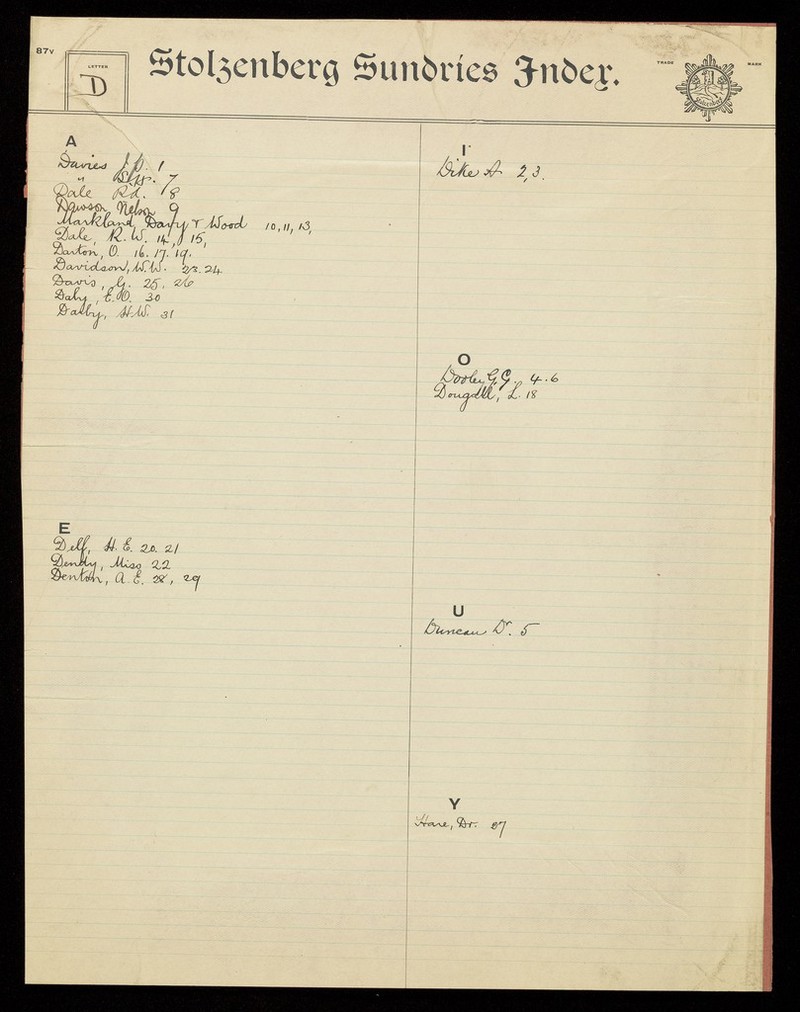 87v
LETTER
D
Stolzenberg Sundries Index.
TRADE MARK
Stolzenberg
A
Davies J.D. 1
" 7
Dale Rd. 8
Dawson Nelson 9
Markland, Davy & Wood 10, 11, 13,
Dale, R. W. 14, 15,
Darton, O. 16. 17. 19.
Davidson, W.W. 23. 24
Davis, G. 25, 26
Daly, E.O. 30
Dalby, H.W. 31
E
Delf, H. E. 20. 21
Dendy, Miss 22
Denton, A. E. 28, 29
I
Dike A 2, 3.
O
Dooley G.G. 4. 6
Dougall, L. 18
U
Duncan Dr. 5
Y
Hare, Dr. 27